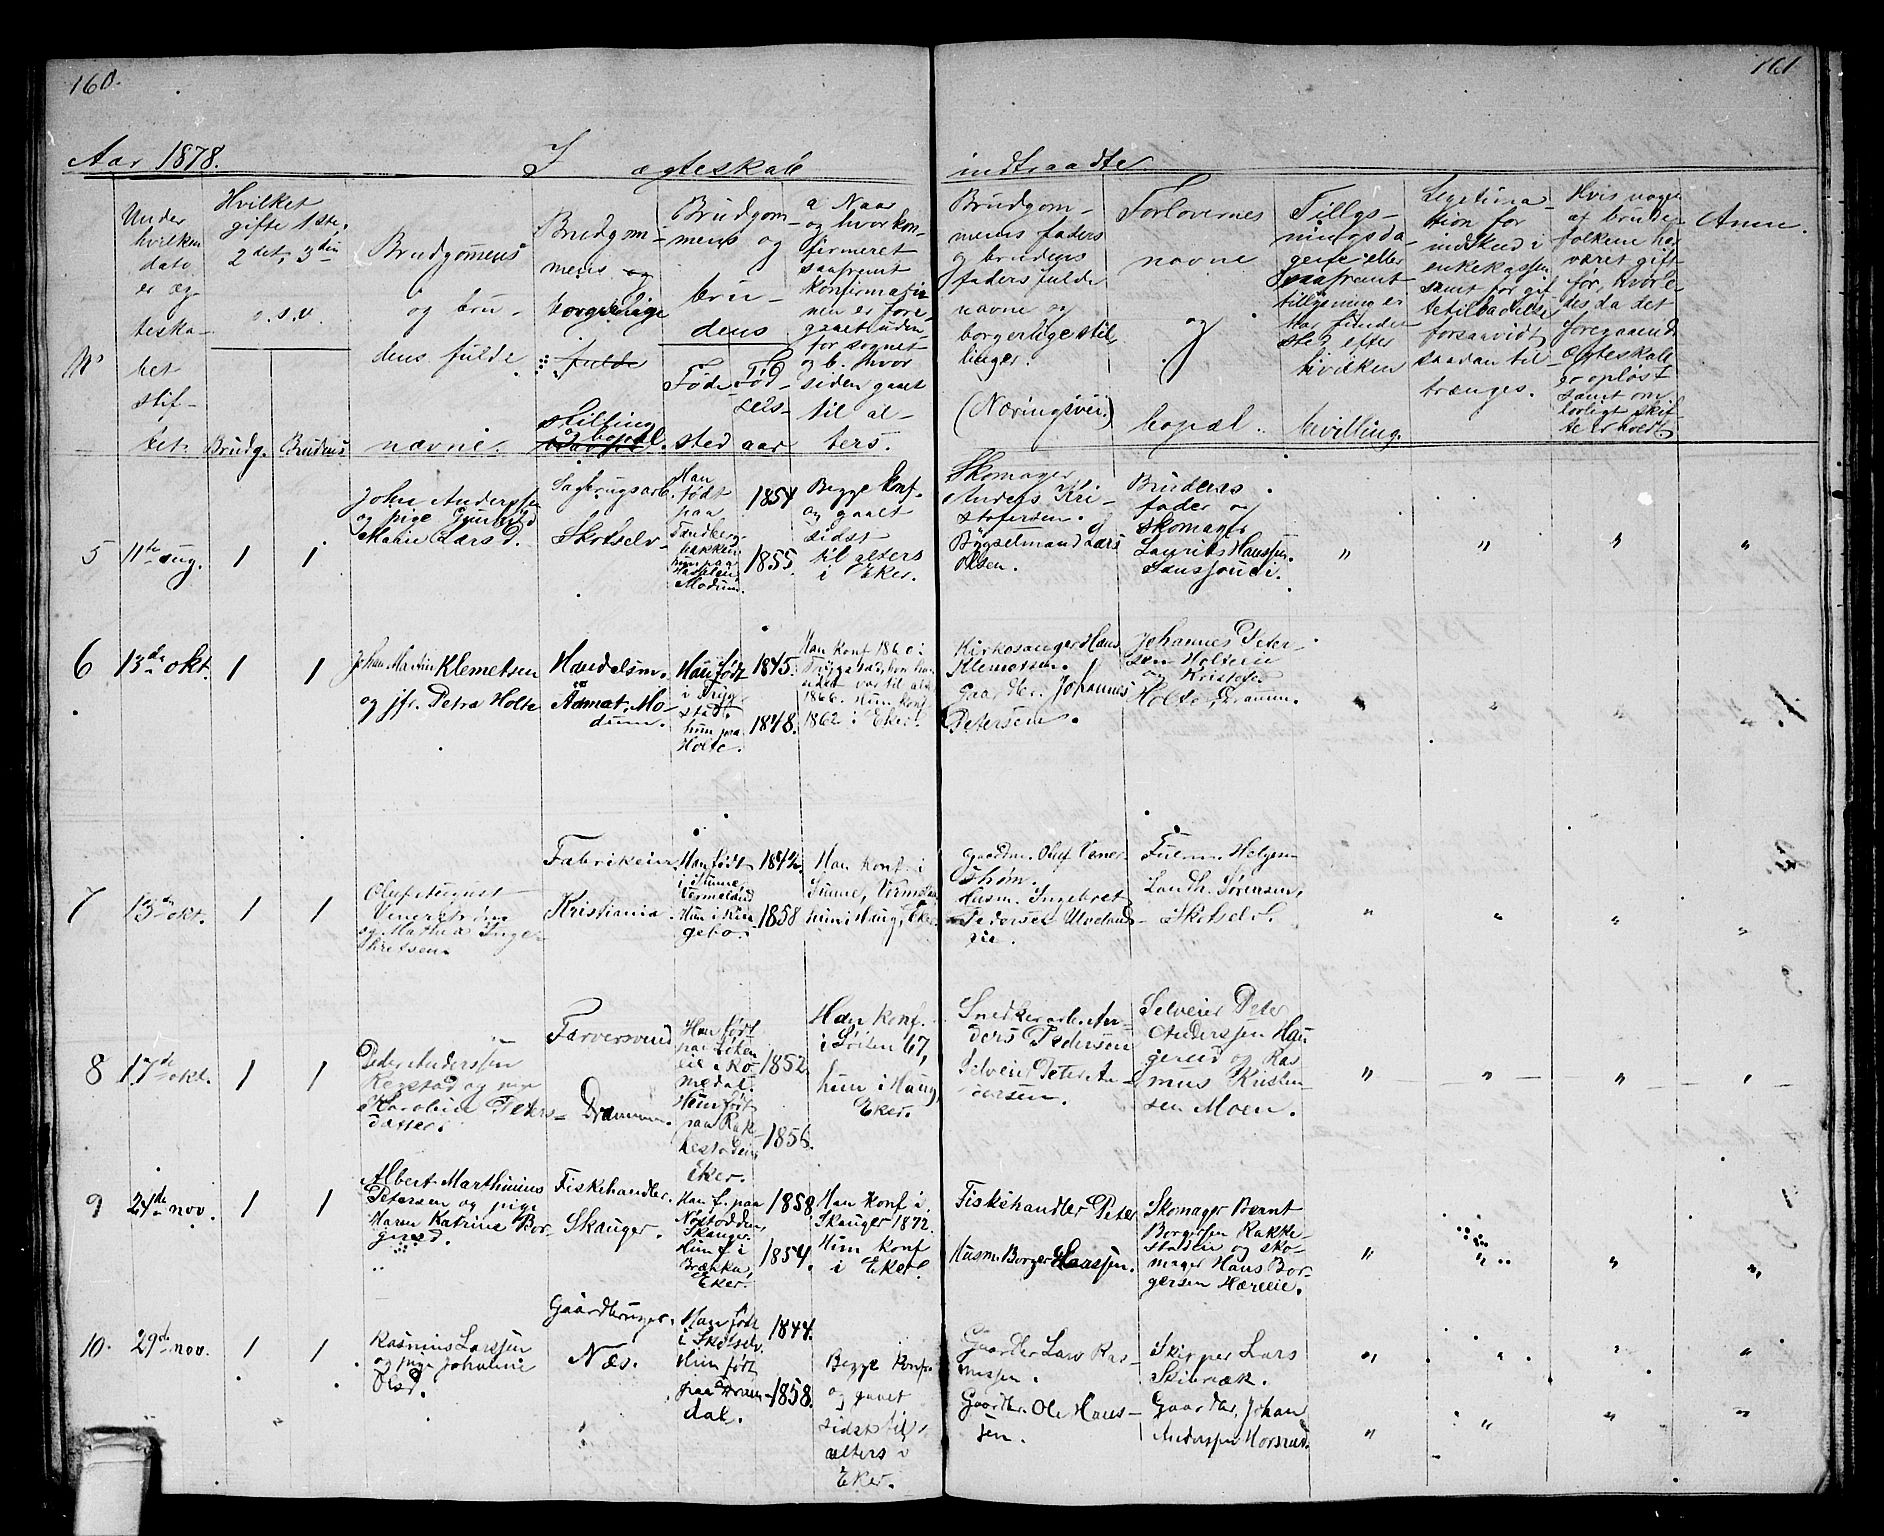 160.
161
Aar 1878.
I ægteskab
indtraadte.
No
Under
hvilken
dato
er æg-
teska-
bet
stif-
tet.
Hvilket
gifte 1ste,
2det, 3die
o. s. v.
Brudg.
Brudens
Brudgomens
og bru-
dens fulde
navne.
Brudgom-
mens og
borgerlige
fulde
stilling
og bopæl.
Brudgom-
mens og
bru-
dens
Føde-
sted
Fød-
sels-
aar
a Naar
og hvor kon-
firmeret
saafremt
konfirmatio-
nen er fore-
gaaet uden-
for sognet
og b. hvor
siden gaaet
til al-
ters.
Brudgom-
mens faders
og brudens
faders fulde
navne og
borgerlige stil-
linger.
(Næringsvei.)
Forlovernes
navne
og
bopæl.
Tillys-
ningsda-
gene eller
saafremt
tillysning ei
har funden
sted efter
hvilken
bevilling.
Legitima-
tion for
indskud i
enkekassen
samt for gif-
tetilladelse
forsaavidt
saadan til-
trænges.
Hvis nogen
af brude-
folkene har
været gift
før, hvorle-
des da det
foregaaende
ægteskab
er opløst
samt om
lovligt skif-
te er holdt.
Anm.
5
11te aug.
1
1
John Anderssen
og pige Gunhild
Marie Larsd.
Sagbrugsarb.
Skotselv
Han
født
paa
Sandberg-
bakken
hun paa
Modum.
1854
1855.
Begge konf.
og gaaet
sidst
til alters
i Eker.
Skomager
Anders Kri-
stofersen. og
Bygselmand Lars
Olsen.
Brudens
fader og
skomager
Laurits Hanssen.
"
"
"
"
6
13de okt.
1
1
Johan Martin Klemetsen
og jfr. Petra Holte
Handelsm.
Aamot, Mo-
dum.
Han født
i Tryg-
stad.
hun paa
Holte.
1845.
1848.
Han konf 1860 i
Trygstad, hvor han
sidst var til alt.
1866. Hun konf
1862 i Eker.
Kirkesanger Hans
Klemetsen.
Gaardbr. Johannes
Petersen.
Johannes Peter-
sen Holteeie
og Kristofer
Holte, Drammen.
"
"
"
7
13de okt.
1
1
Oluf August
Venerstrøm
og Mathea Inge-
bretsen.
Fabrikeier.
Kristiania.
Han født
i Sunne,
Vermeland
Hun i Hau-
gebo.
1842.
1858
Han konf. i
Sunne, Vermeland
hun i Haug, Eker.
Gaardm. Oluf Vener-
strøm.
Husm. Ingebret
Pedersen Ulveland-
eie.
Fuldm. Helgesen
Landh. Sørensen,
Skotselv.
"
"
"
"
8
17de okt.
1
1
Peder Anderssen
Kegstad og pige
Karoline Peters-
datter.
Farversvend
Drammen.
Han født
paa Liken
eie i Ro-
medal.
Hun født
paa Rak-
kestadeie
Eker.
1852
1856.
Han konf.
i Løiten 67,
hun i Haug,
Eker.
Snedkerarb. An-
ders Pedersen
Selveier Peter An-
dersen.
Selveier Peter
Anderssen Hau-
gerud og Ras-
mus Kristen-
sen Moen.
"
"
"
"
9
24de nov.
1
1
Albert Marthinius
Petersen og pige
Maren Katrine Bor-
gersd.
Fiskehandler.
Skauger.
Han f. paa
Nøstodden,
Skauger.
Hun f. i
Brækka,
Eker.
1858.
1854.
Han konf i
Skauger 1872.
Hun konf
i Eker.
Fiskehandler Peter
Husm. Borger Hanssen.
Skomager Bernt
Borgersen Rakke-
stadeie og sko-
mager Hans Bor-
gersen Hæreeie.
"
"
"
"
10.
29de nov.
1
1
Rasmus Larssen
og pige Johanne
Olsd.
Gaardbruger.
Næs.
Han født
i Skotselv.
Hun født
paa Dram-
dal.
1844.
1858.
Begge konf.
og gaaet
sidst til
alters i
Eker.
Gaardbr Lars Ras-
mussen.
Gaardbr. Ole Hans-
sen.
Skipper Lars
Skibvæk.
Gaardbr. Johan
Anderssen Horsrud.
"
"
"
"
"
"
"
"